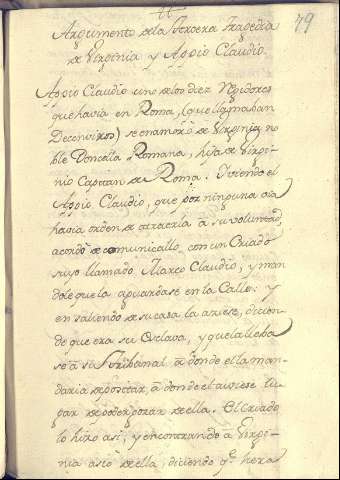 79
Argumento de la Tercera Tragedia
de Virginia y Appio Claudio.
Appio Claudio uno de los diez Regidores
que havia en Roma, (que llamaban
Decenviros) se enamoró de Virginia no
ble Doncella Romana, hija de Virgi-
nio Capitan de Roma. Y viendo el
Appio Claudio, que por ninguna via
havia orden de atraerla à su voluntad,
acordò de comunicallo con un Criado
suyo llamado Marco Claudio, y man
dóle que la aguardase en la Calle: y
en saliendo de su casa la asiese, dicien-
do que era su Esclava, y que la lleba
se à su Tribunal à donde ella man-
daria depositar, à donde el tuviese lu-
gar de poder gozar de ella. El Criado
lo hizo asi, y encontrando à Virgi-
nia asiò de ella, diciendo q.e hera